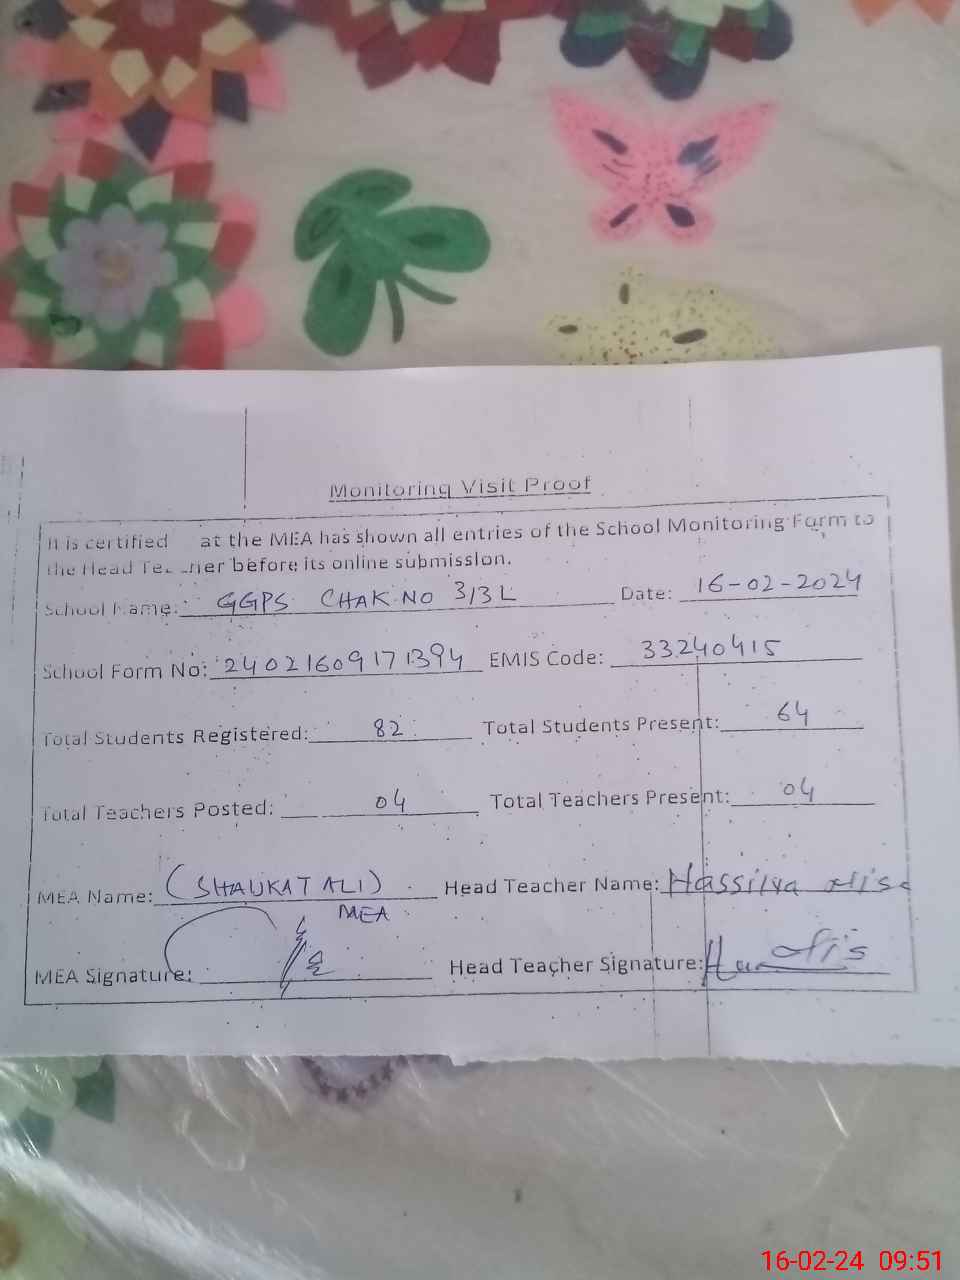 Monitoring Visit Proof
It is certified at the MEA has shown all entries of the School Monitoring Form to
the Head before its online submission.
School Name: GGPS CHAK NO 3/3L Date: 16-02-2024
School Form No: 24021609171394 EMIS Code: 33240415
Total Students Registered: 82 Total Students Present: 64
Total Teachers Posted: 04 Total Teachers Present: 04
MEA Name: (SHAUKAT ALI) Head Teacher Name:
MEA
MEA Signature: Head Teacher Signature:
16-02-24 09:51